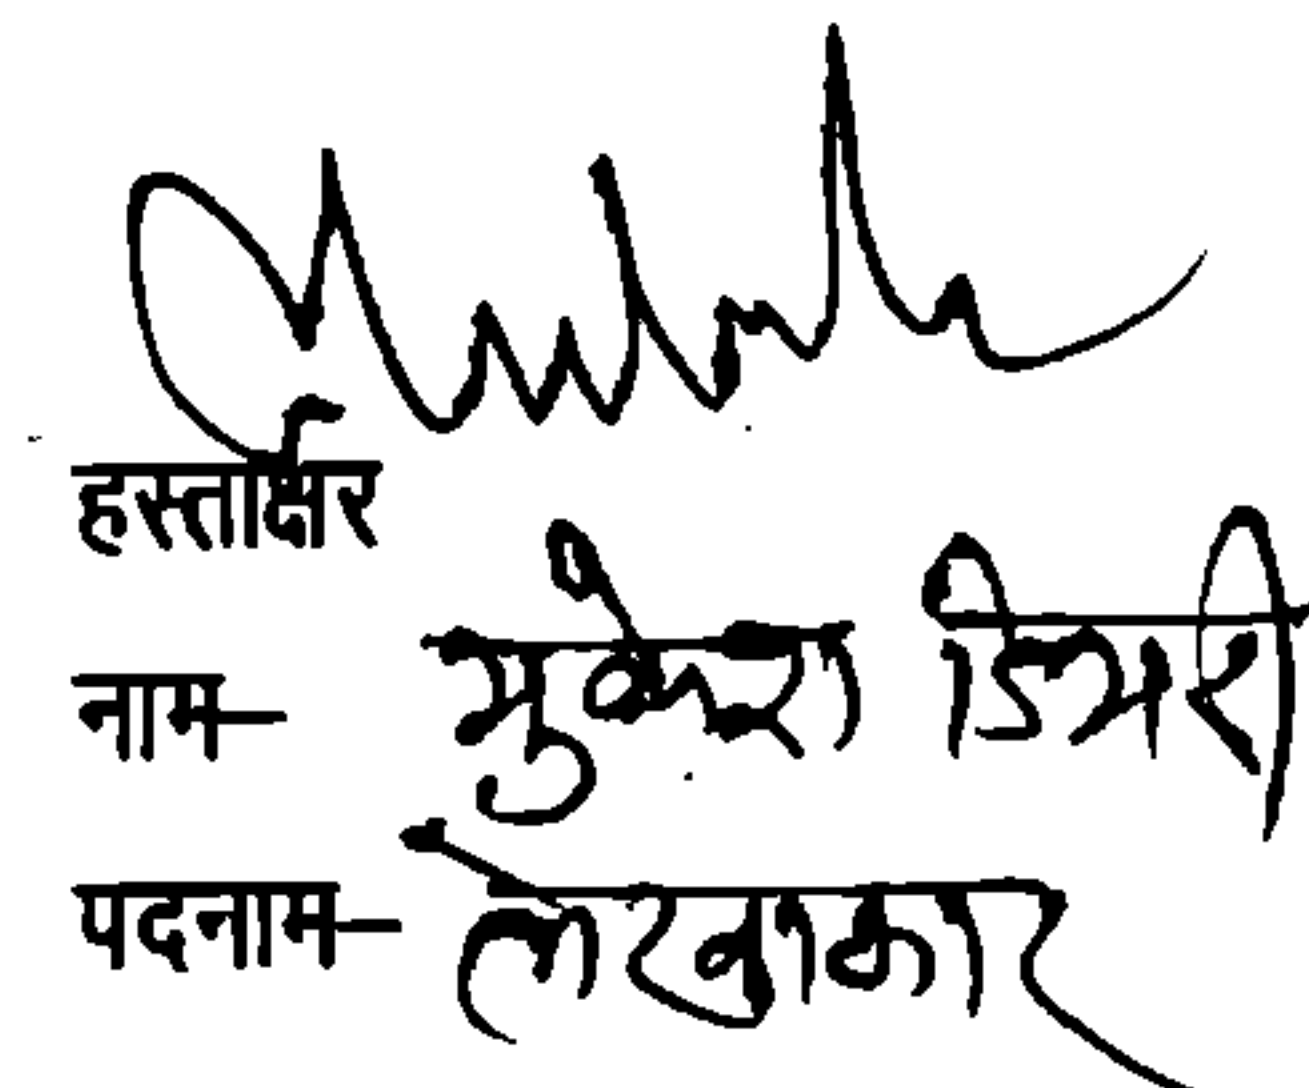 हस्ताक्षर
नाम– मुकेश डिमरी
पदनाम– लेखाकार